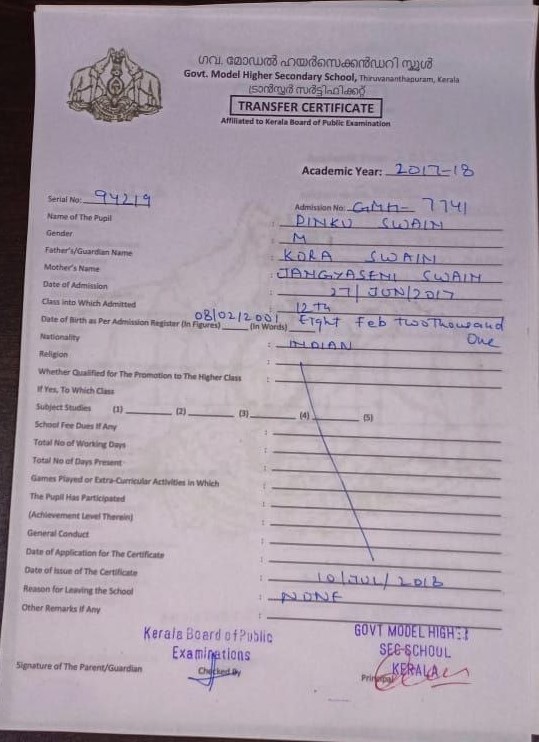 ഗവ. മോഡൽ ഹയർസെക്കൻഡറി സ്കൂൾ
Govt. Model Higher Secondary School, Thiruvananthapuram, Kerala
ട്രാൻസ്ഫർ സർട്ടിഫിക്കറ്റ്
TRANSFER CERTIFICATE
Affiliated to Kerala Board of Public Examination
Academic Year: 2017-18
Serial No: 94219 Admission No: GMH- 7741
Name of The Pupil : DINKU SWAIN
Gender : M
Father's/Guardian Name : KORA SWAIN
Mother's Name : JANGYASENI SWAIN
Date of Admission : 27/JUN/2017
Class into Which Admitted : 12th
Date of Birth as Per Admission Register (In Figures) 08/02/2001 (In Words) Eight Feb two thousand One
Nationality : INDIAN
Religion :
Whether Qualified for The Promotion to The Higher Class :
If Yes, To Which Class
Subject Studies (1) (2) (3) (4) (5)
School Fee Dues If Any :
Total No of Working Days :
Total No of Days Present :
Games Played or Extra-Curricular Activities in Which :
The Pupil Has Participated :
(Achievement Level Therein) :
General Conduct :
Date of Application for The Certificate :
Date of Issue of The Certificate : 10/JUL/2018
Reason for Leaving the School : NONE
Other Remarks If Any :
Kerala Board of Public
Examinations
GOVT MODEL HIGH
SEC SCHOOL
KERALA
Signature of The Parent/Guardian Checked By Principal